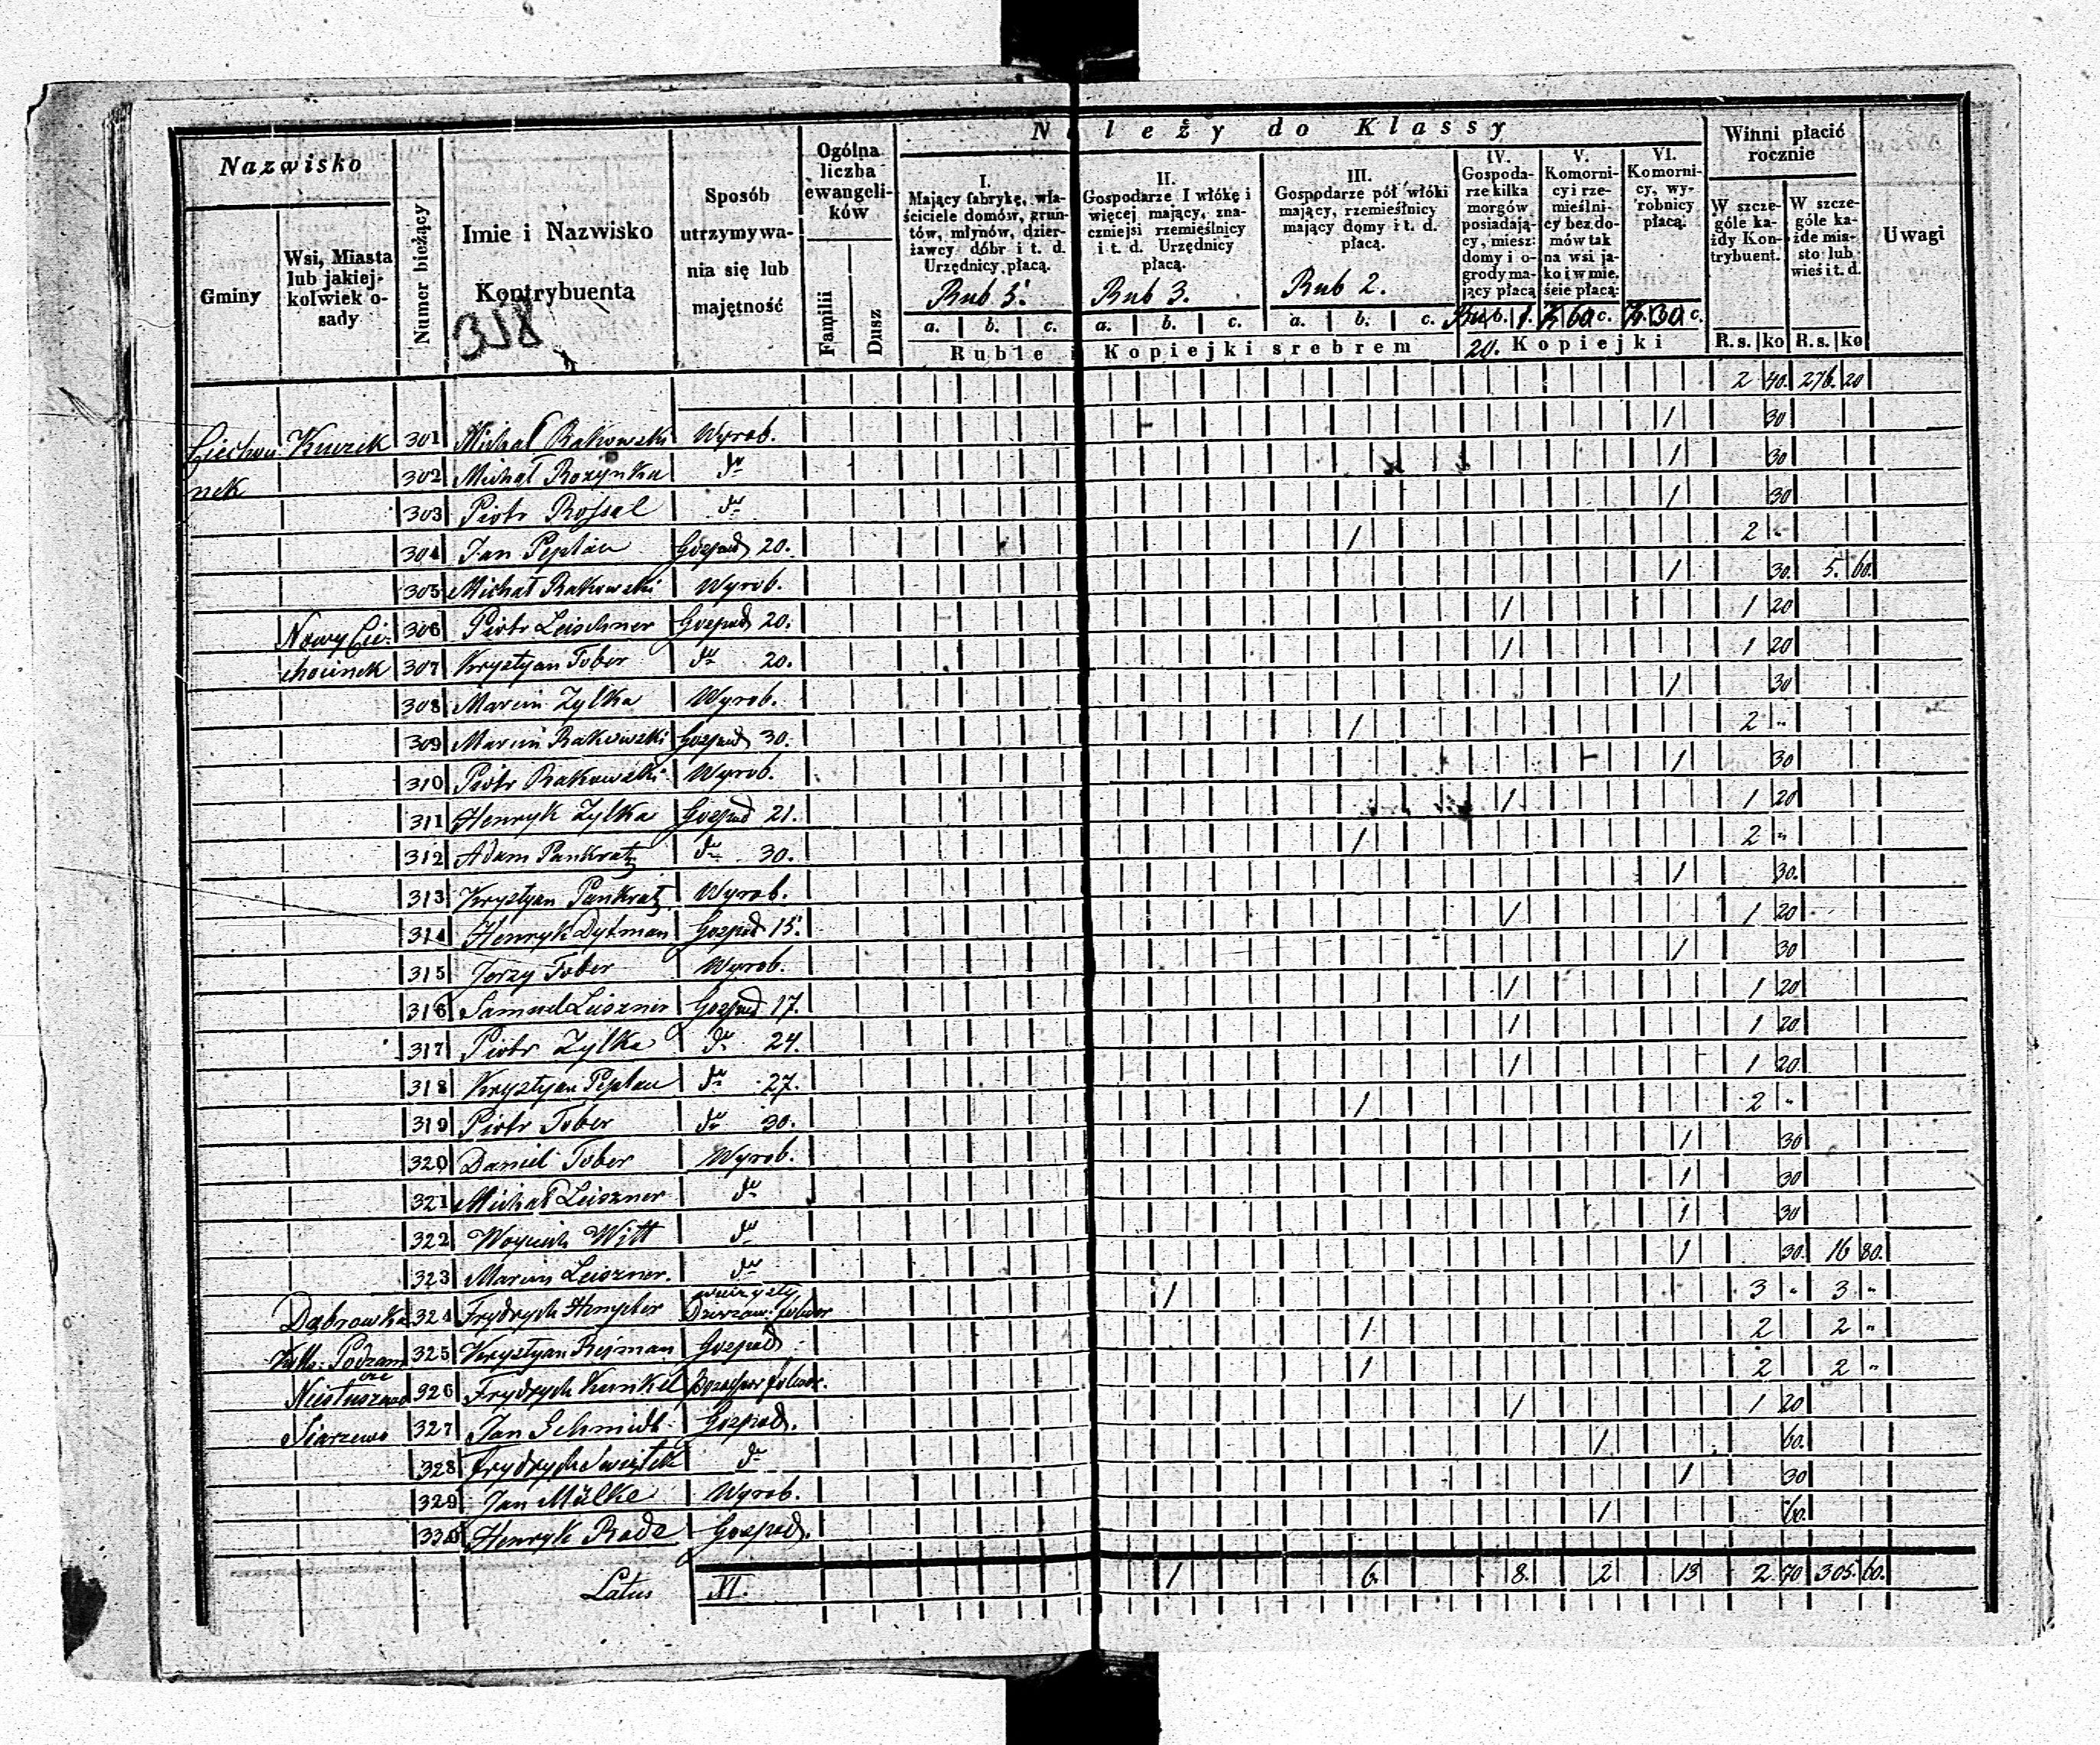 Należy do Klassy
Nazwisko
Gminy
Wsi, Miasta lub jakiej-kolwiek o-sady
Numer bieżący
Imie i Nazwisko
Kontrybuenta
318
Sposób utrzymywa-nia się lub majętność
Ogólna liczba ewangeli-ków
Familii
Dusz
I. Mający fabrykę, wła-ściciele domów, grun-tów, młynów, dzier-żawcy dóbr i t. d. Urzędnicy płacą.
Rub 5.
II. Gospodarze I włókę i więcej mający, zna-czniejsi rzemieślnicy i t. d. Urzędnicy płacą.
Rub 3.
III. Gospodarze pół włóki mający, rzemieślnicy mający domy i t. d. płacą.
Rub 2.
IV. Gospoda-rze kilka morgów posiadają-cy, miesz: domy i o-grody ma-jący płacą
Rub. 1. 20.
V. Komorni-cy i rze-mieślni-cy bez do-mów tak na wsi ja-ko i w mie-ście płacą:
60
VI. Komorni-cy, wy-robnicy płacą.
30
Winni płacić rocznie
W szcze-góle ka-żdy Kon-trybuent.
W szcze-góle ka-żde mia-sto lub wieś i t. d.
Uwagi
a. b. c. a. b. c. a. b. c.
Ruble i Kopiejki srebrem Kopiejki R.s. ko R.s. ko
2 40. 276. 20
Ciechoci- Kuczek 301 Michał Rakowski Wyrob. 1 30
nek 302 Michał Rozynka do 1 30
303 Piotr Rossal do 1 30
304 Jan Peplau Gospod 20. 1 2 "
305 Michał Rakowski Wyrob. 1 30. 5. 60.
Nowy Cie- 306 Piotr Leischner Gospod 20. 1 1 20
chocinek 307 Krystyan Tober do 20. 1 1 20
308 Marcin Zylka Wyrob. 1 30
309 Marcin Rakowski Gospod 30. 1 2 "
310 Piotr Rakowski Wyrob. 1 30
311 Henryk Zylka Gospod 21. 1 1 20
312 Adam Pankratz do 30. 1 2 "
313 Krystyan Pankratz Wyrob. 1 30.
314 Henryk Dytman Gospod 15. 1 1 20
315 Jerzy Tober Wyrob. 1 30
316 Samuel Leiszner Gospod 17. 1 1 20
317 Piotr Zylka do 24. 1 1 20
318 Krystyan Peplau do 27. 1 1 20
319 Piotr Tober do 30. 1 2 "
320 Daniel Tober Wyrob. 1 30
321 Michał Leiszner do 1 30
322 Woyciech Witt do 1 30
323 Marcin Leiszner. do 1 30. 16 80.
Dąbrowka 324 Frydrych wieczysty Dzierzaw. folwar 1 3 " 3 "
Podzam cze 325 Krystyan Rejman Gospod 1 2 2 "
326 Frydrych Kunkel folwar. 1 2 2 "
Siarzewo 327 Jan Schmidt Gospod. 1 1 20
328 Frydrych do 1 60.
329 Jan Mülke Wyrob. 1 30
330 Henryk Rode Gospod. 1 60.
Latus XI. 1 6. 8. 2 13 2 70 305. 60.